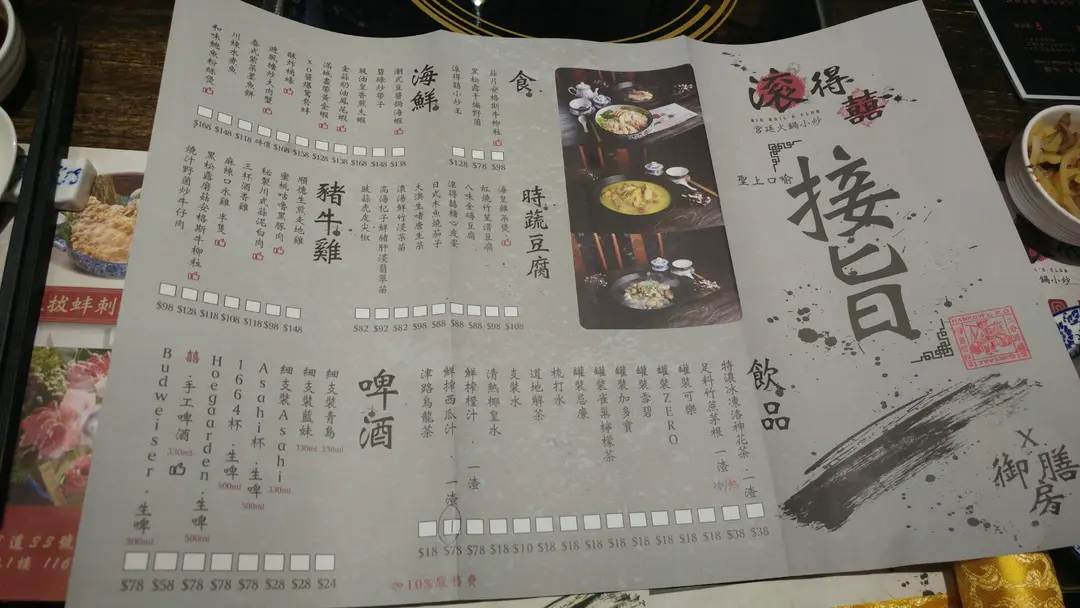 滾得囍
BIG BOIL'S CLUB
宮廷火鍋小炒
聖上口喻
接旨
X 御膳房
食
蒜片安格斯牛柳粒
黑松露干煸野菌
滾得囍小炒王
$128 $78 $98
海鮮
潮式豆醬焗海蝦
椒鹽炒帶子
豉油皇香煎大蝦
金蒜奶油鳳尾蝦
滿城盡帶黃金蝦
X.O醬爆鴛鴦蚌
酥炸桶蠔
避風塘炒大肉蟹
泰式紫菜墨魚餅
川辣水煮魚
和味鮑魚粉絲煲
$168 $148 $118 時價 $168 $158 $128 $138 $168 $148 $138
時蔬豆腐
海皇雜菜煲
紅燒竹笙滑豆腐
八味金磚豆腐
滾得囍糖心皮蛋
日式木魚燒茄子
大澳生嗜唐生菜
濃湯鮮竹浸菜苗
高湯杞子鮮豬肝浸翡翠苗
豉蒜虎皮尖椒
$82 $92 $82 $98 $88 $88 $88 $98 $108
豬牛雞
順德生煎走地雞
蜜桃咕嚕黑豚肉
秘製川式蒜泥白肉
三杯酒香雞
麻辣口水雞 半隻
黑松露磨菇安格斯牛柳粒
燒汁野菌炒牛仔肉
$98 $128 $118 $108 $118 $98 $148
飲品
特濃冰凍洛神花茶 一渣
足料竹蔗茅根 一渣 冷/熱
罐裝可樂
罐裝ZERO
罐裝雪碧
罐裝加多寶
罐裝雀巢檸檬茶
罐裝忌廉
梳打水
道地解茶
支裝水
清熱椰皇水
鮮搾橙汁 . 一渣
鮮搾西瓜汁 . 一渣
津路烏龍茶
$18 $78 $78 $18 $10 $18 $18 $18 $18 $18 $18 $18 $18 $38 $38
啤酒
細支裝青島 330ml
細支裝藍妹 330ml
細支裝Asahi 330ml
Asahi杯.生啤 500ml
1664杯.生啤 500ml
Hoegaarden.生啤 500ml
囍.手工啤酒 330ml
Budweiser.生啤 500ml
$78 $58 $78 $78 $78 $28 $28 $24
加10%服務費
拔蚌刺